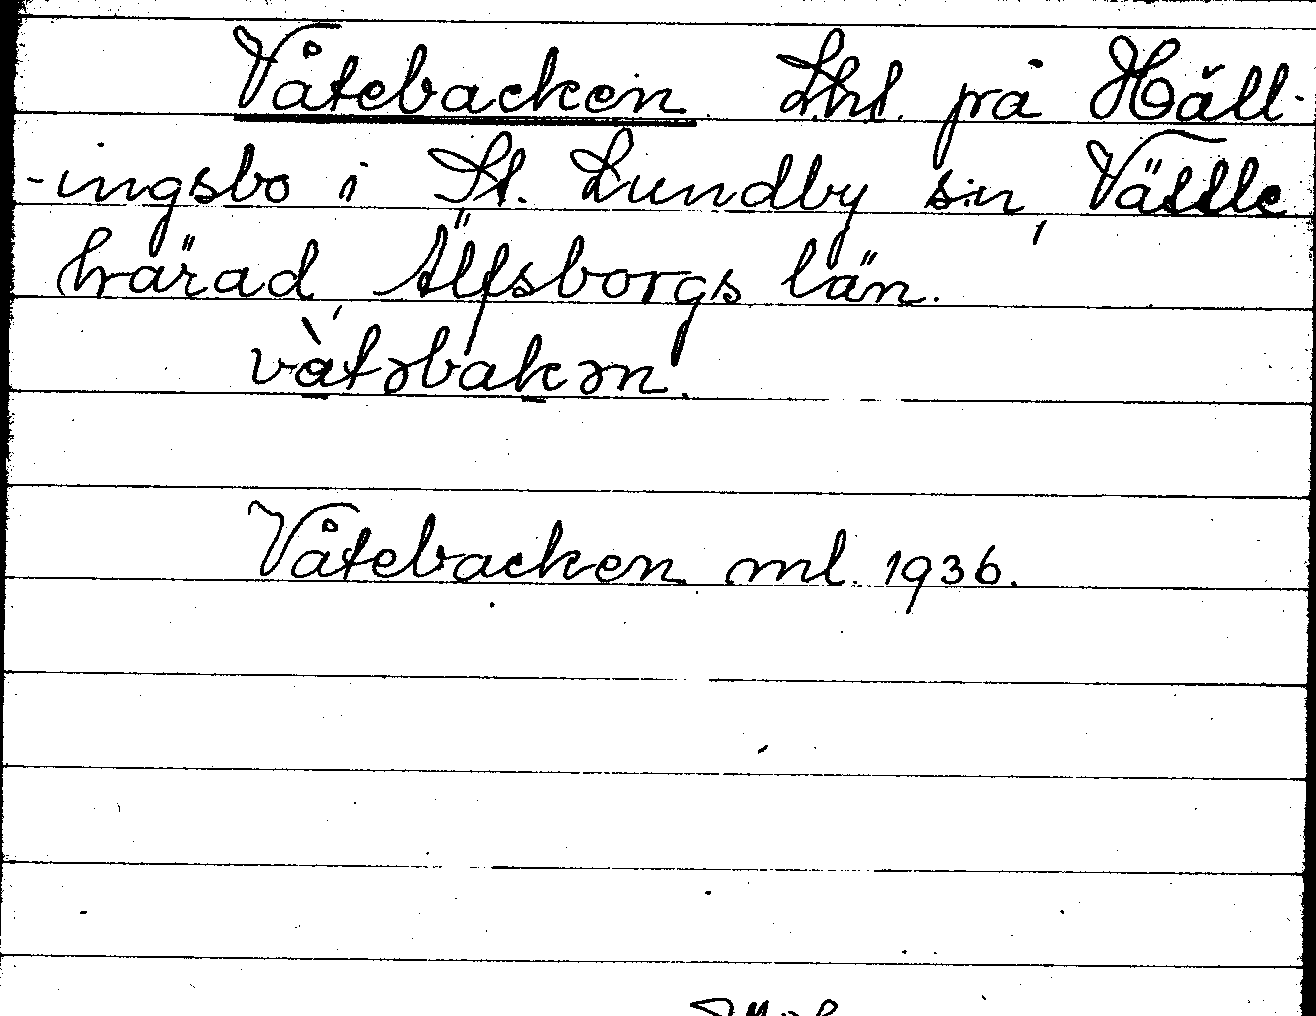 Våtebacken Lht. på Häll-
-ingsbo i St. Lundby sn, Vättle
härad, Älfsborgs län.
vàtəbakən.
Våtebacken ml. 1936.